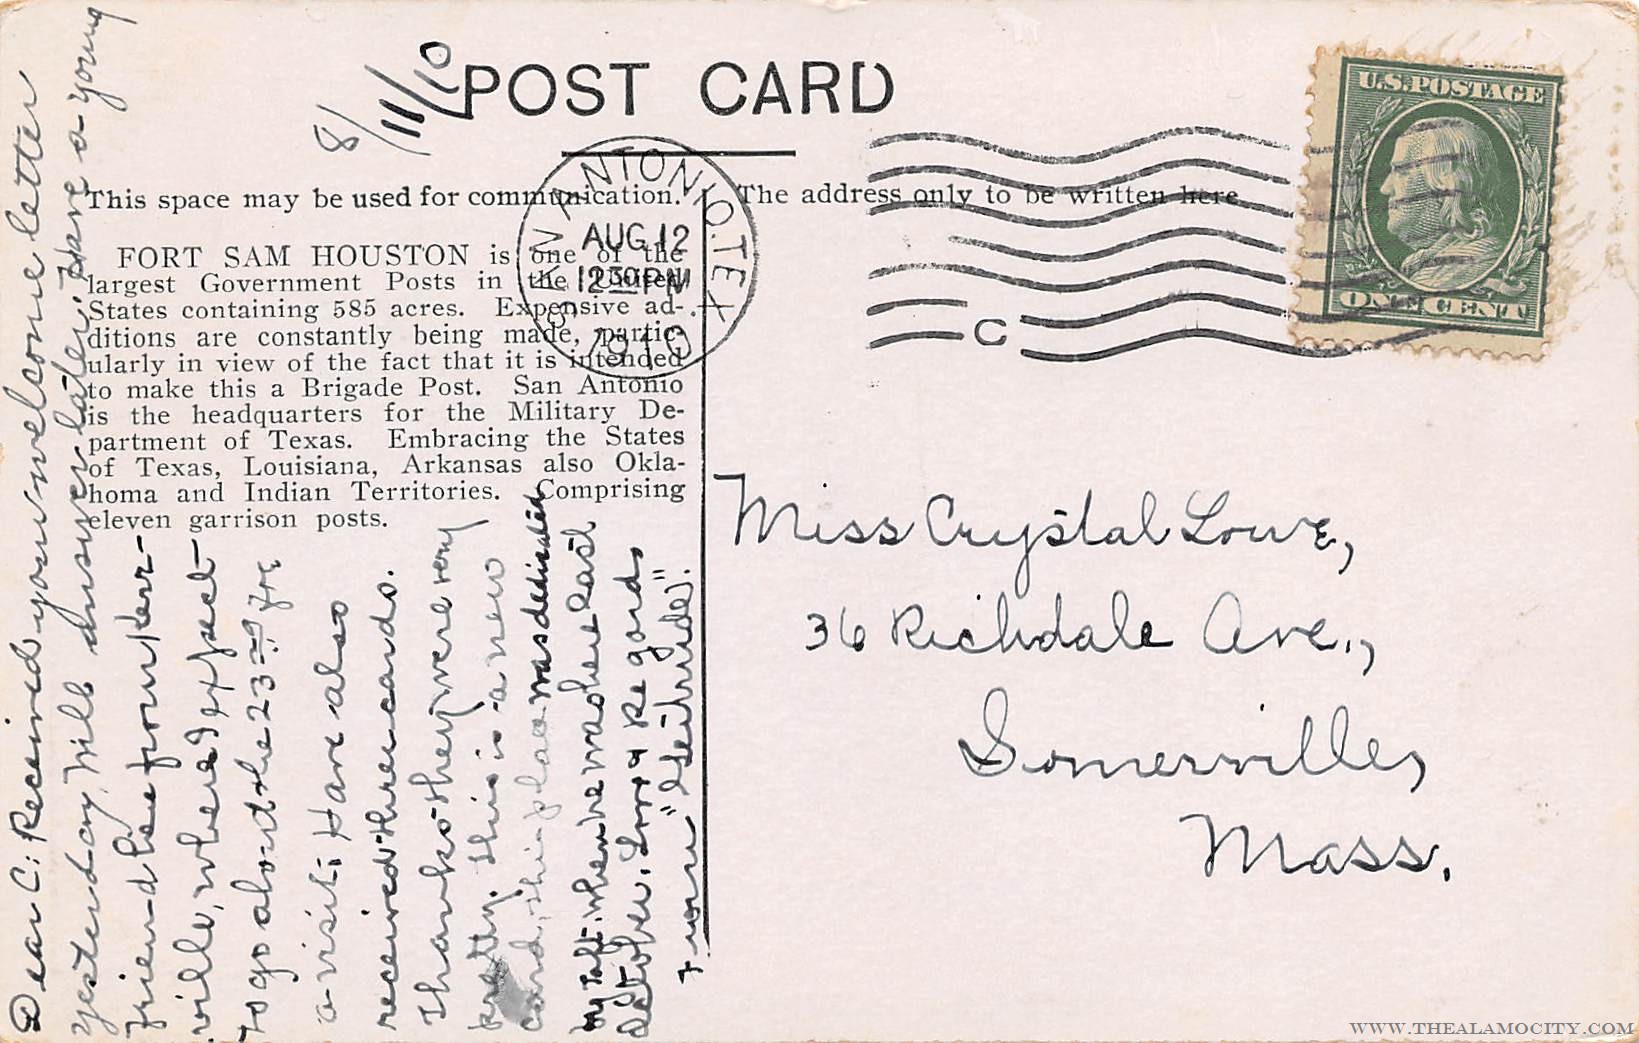 POST CARD
8/11/10
This space may be used for communication.
The address only to be written here
FORT SAM HOUSTON is one of the
largest Government Posts in the United
States containing 585 acres. Expensive ad-
ditions are constantly being made, partic-
ularly in view of the fact that it is intended
to make this a Brigade Post. San Antonio
is the headquarters for the Military De-
partment of Texas. Embracing the States
of Texas, Louisiana, Arkansas also Okla-
homa and Indian Territories. Comprising
eleven garrison posts.
SAN ANTONIO. TEX.
AUG 12
1230 PM
1910
C
U.S. POSTAGE
ONE CENT
Miss Crystal Lowe,
36 Richdale Ave.,
Somerville,
Mass.
Dear C: Received your welcome letter
yesterday, Will answer later. Have a young
friend here from Kerr-
ville, where I expect
to go about the 23rd for
a visit. Have also
received three cards.
Thanks they were very
pretty. this is a new
card, this place was dedicated
by Taft when he was here last
October. Love & Regards
from "Gertrude".
WWW.THEALAMOCITY.COM